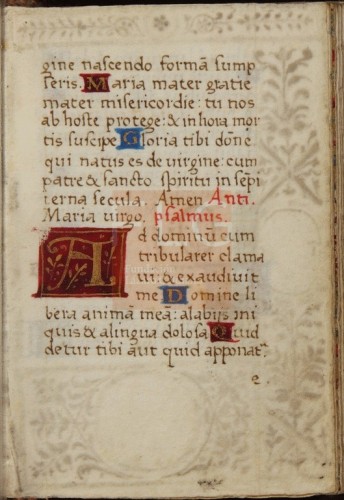 gine nascendo formā sump
seris. Maria mater gratie
mater misericordie: tu nos
ab hoste protege: & in hora mor
tis suscipe Gloria tibi dōne
qui natus es de virgine: cum
patre & sancto spiritu in sepi
terna secula. Amen Anti.
Maria virgo. psalmus.
Ad dominū cum
tribularer clama
ui: & exaudiuit
me Domine li
bera animā meā: alabijs ini
quis & alingua dolosa Quid
detur tibi aut quid apponat